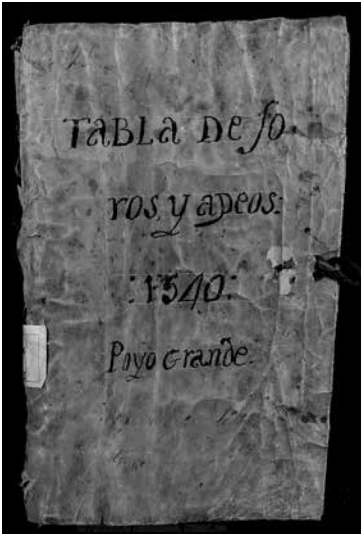 TaBLa De fo
ros, y apeos:
:1540:
Poyo Grande.